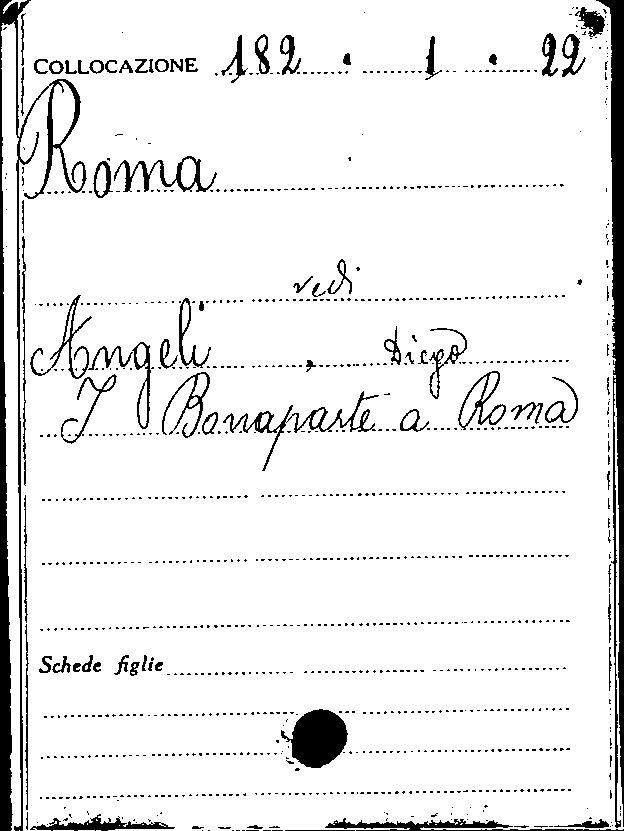 COLLOCAZIONE 182 . 1 . 22
Roma
vedi
Angeli, Diego
I Bonaparte a Roma
Schede figlie